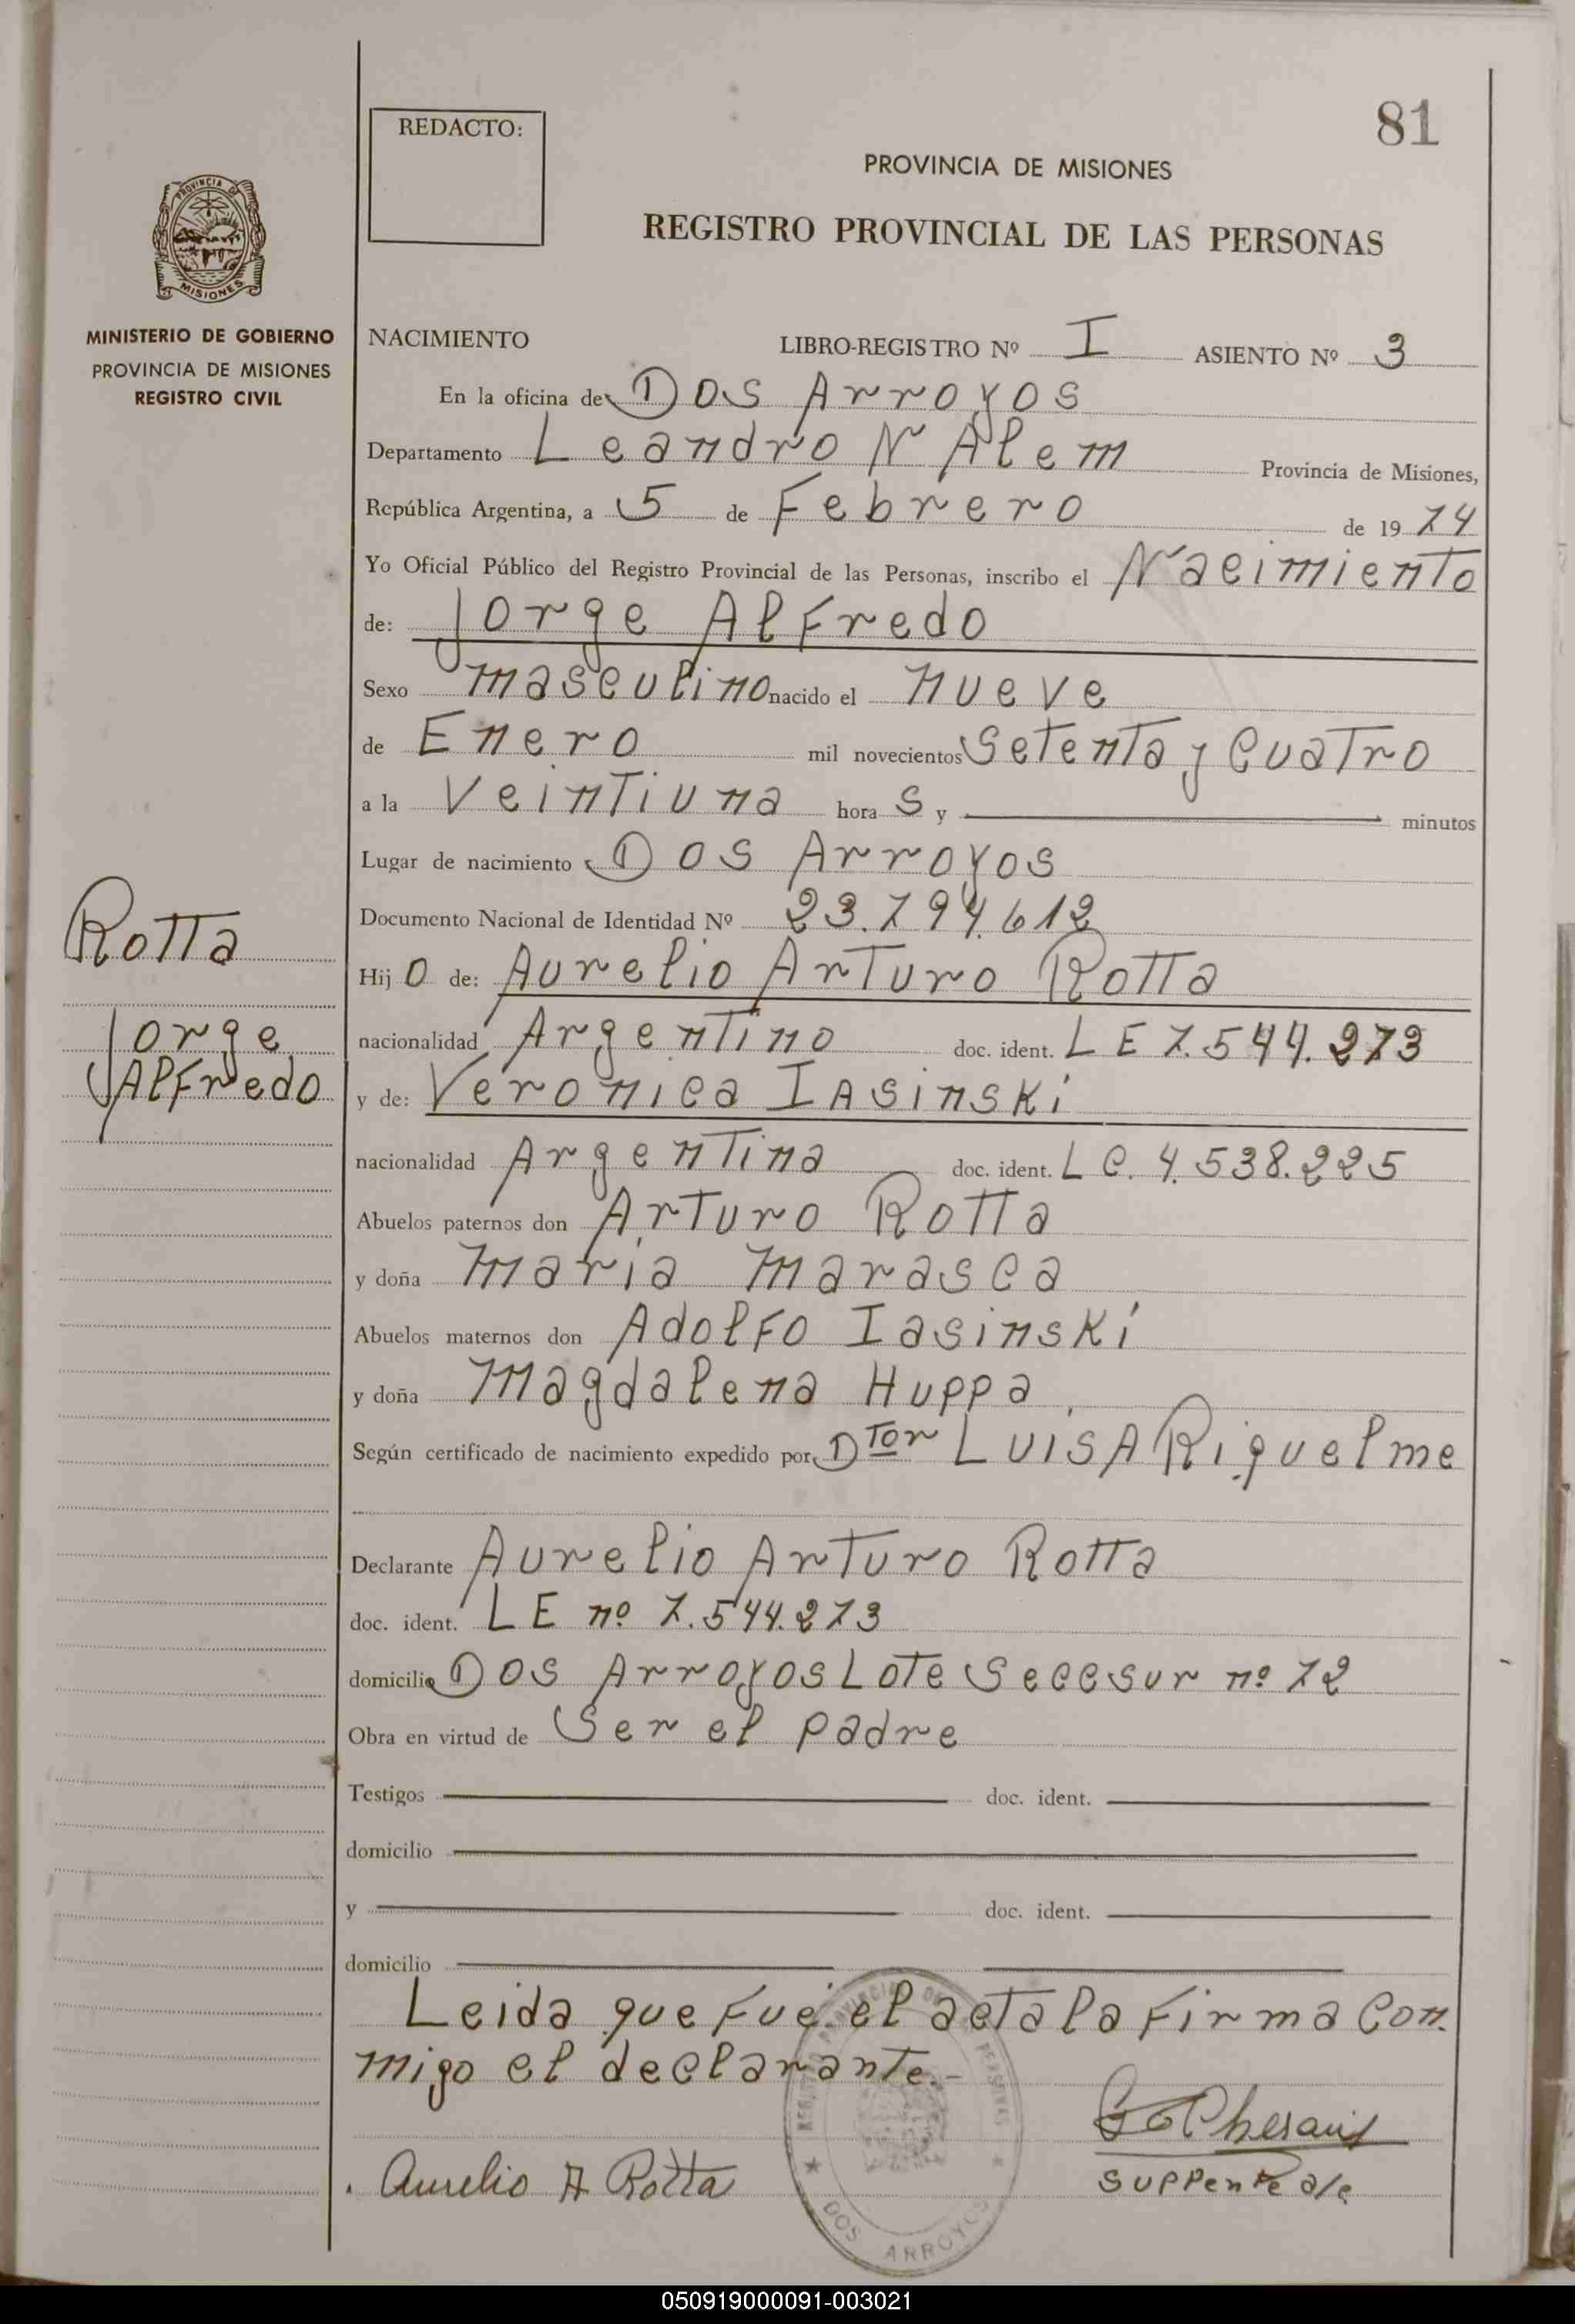 81
REDACTO:
PROVINCIA DE MISIONES
REGISTRO PROVINCIAL DE LAS PERSONAS
PROVINCIA DE
MISIONES
MINISTERIO DE GOBIERNO
PROVINCIA DE MISIONES
REGISTRO CIVIL
NACIMIENTO LIBRO-REGISTRO Nº I ASIENTO Nº 3
En la oficina de Dos Arroyos
Departamento Leandro N Alem Provincia de Misiones,
República Argentina, a 5 de Febrero de 1974
Yo Oficial Público del Registro Provincial de las Personas, inscribo el Nacimiento
de: Jorge Alfredo
Sexo masculino nacido el nueve
de Enero mil novecientos Setenta y Cuatro
a la Veintiuna hora s y minutos
Lugar de nacimiento Dos Arroyos
Documento Nacional de Identidad Nº 23.794.612
Rotta
Jorge
Alfredo
Hij o de: Aurelio Arturo Rotta
nacionalidad Argentino doc. ident. L E 7.544.273
y de: Veronica Iasinski
nacionalidad Argentina doc. ident. L C. 4.538.225
Abuelos paternos don Arturo Rotta
y doña Maria Marasca
Abuelos maternos don Adolfo Iasinski
y doña Magdalena Huppa
Según certificado de nacimiento expedido por Dtor Luis A Riquelme
Declarante Aurelio Arturo Rotta
doc. ident. L E nº 7.544.273
domicilio Dos Arroyos Lote Secc sur nº 72
Obra en virtud de Ser el padre
Testigos doc. ident.
domicilio
y doc. ident.
domicilio
Leida que fué el acta la firma con
migo el declarante.-
Aurelio A Rotta
Suplente a/c
DOS ARROYOS
050919000091-003021